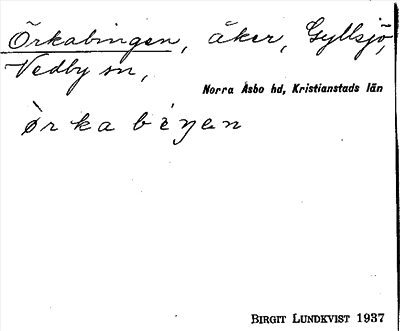 Örkabingen, åker, Gyllsjö,
Vedby sn,
Norra Åsbo hd, Kristianstads län
ø̀rkabèŋen
BIRGIT LUNDKVIST 1937